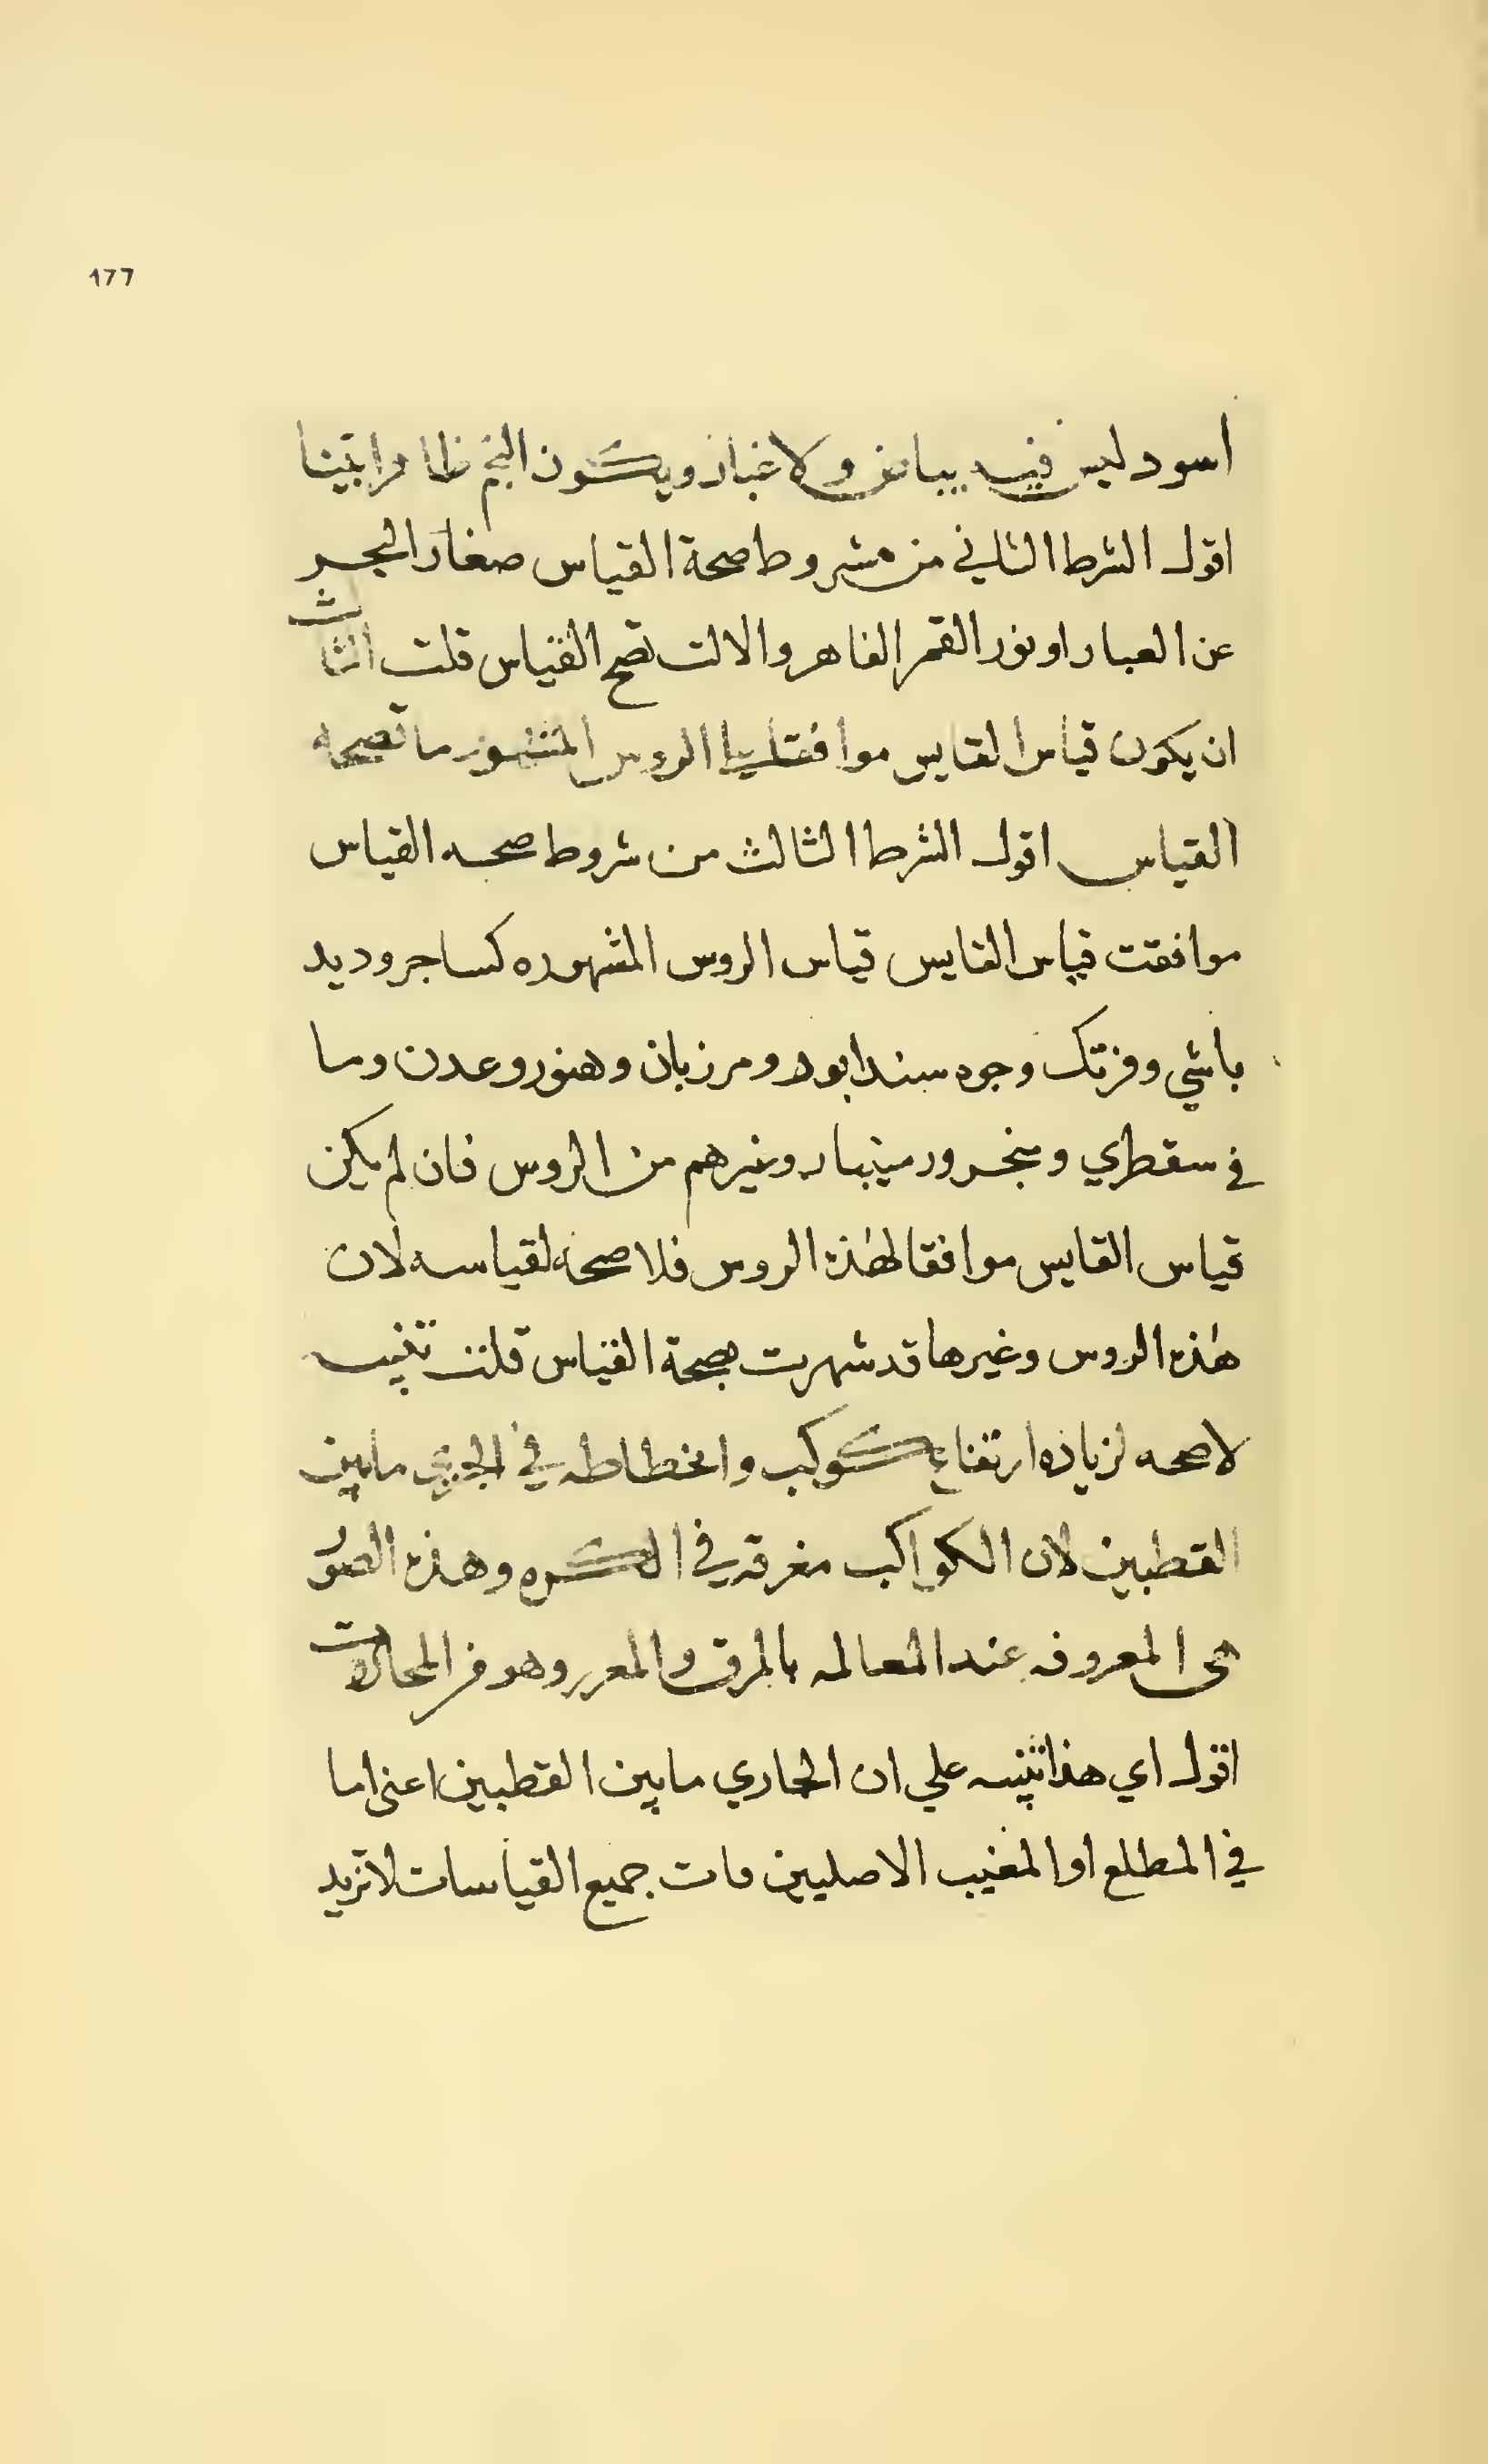 177
اسود ليس فيه بياض ولا غبار ويكون النجم ظاهرا بينا
اقول الشرط الثاني من شروط صحة القياس صغار البحر
عن الغبار او نور القمر القاهر والالت تصح القياس قلت الثالث
ان يكون قياس القايس موافقا الروس المشهور ما تصحه
القياس اقول الشرط الثالث من شروط صحه القياس
موافقت قياس القايس قياس الروس المشهوره كساجر وديد
باشي وفرتك وجوه سندابور ومرزبان وهنور وعدن وما
في سقطري و ومينبار وغيرهم من الروس فان لم يكن
قياس القايس موافقا لهذه الروس فلا صحة لقياسه لان
هذه الروس وغيرها قد شهرت بصحة القياس قلت تنبيه
لاصحه لزياده ارتفاع كوكب وانحطاطه في الجري مابين
القطبين لان الكواكب مغرقه في الكره وهذه الصور
هي المعروفه عند المعالمه بالمرق والمعرر وهو المحاذات
اقول اي هذا تنبيه علي ان المجاري مابين القطبين اعني اما
في المطلع او المغيب الاصليين مات جميع القياسات لاتزيد